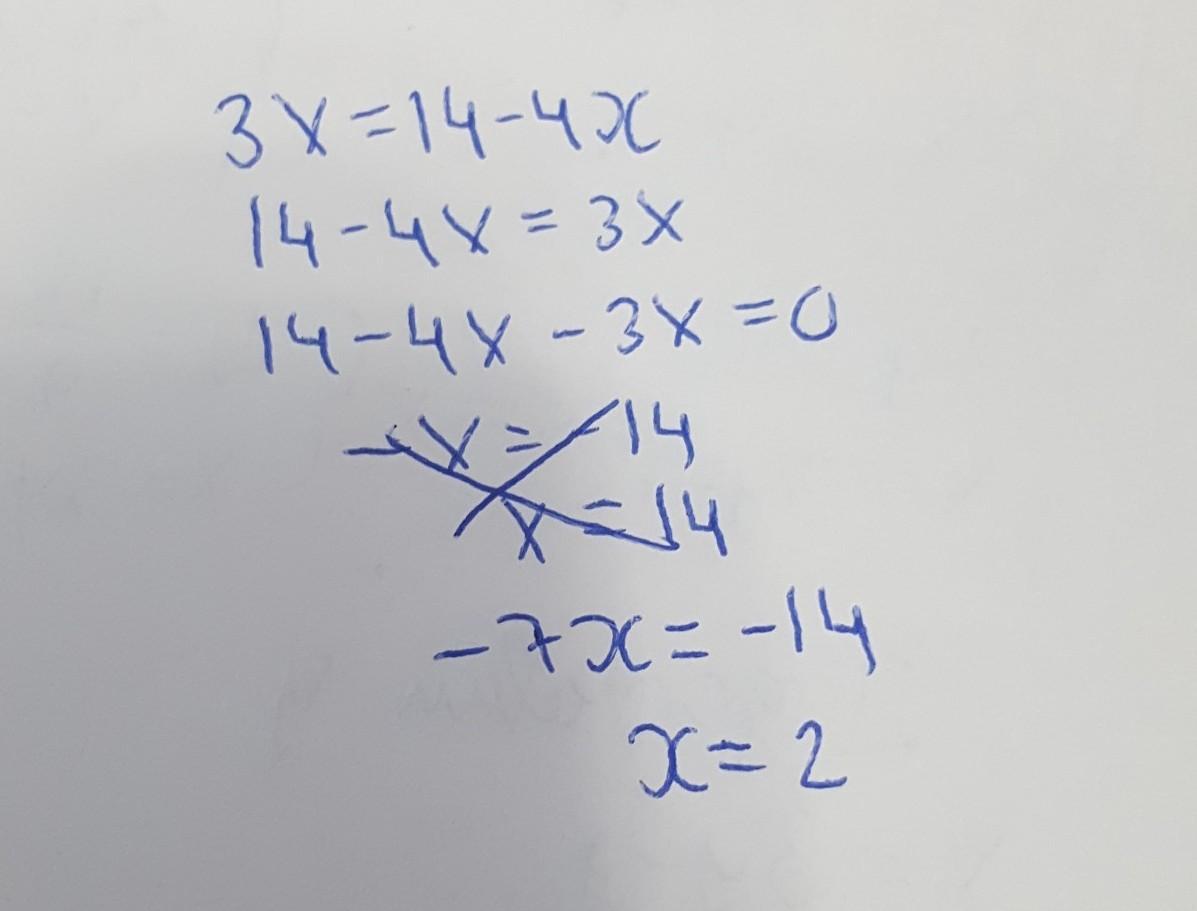 3x=14-4x
14-4x=3x
14-4x-3x=0
-x=-14
x=14
-7x=-14
x=2